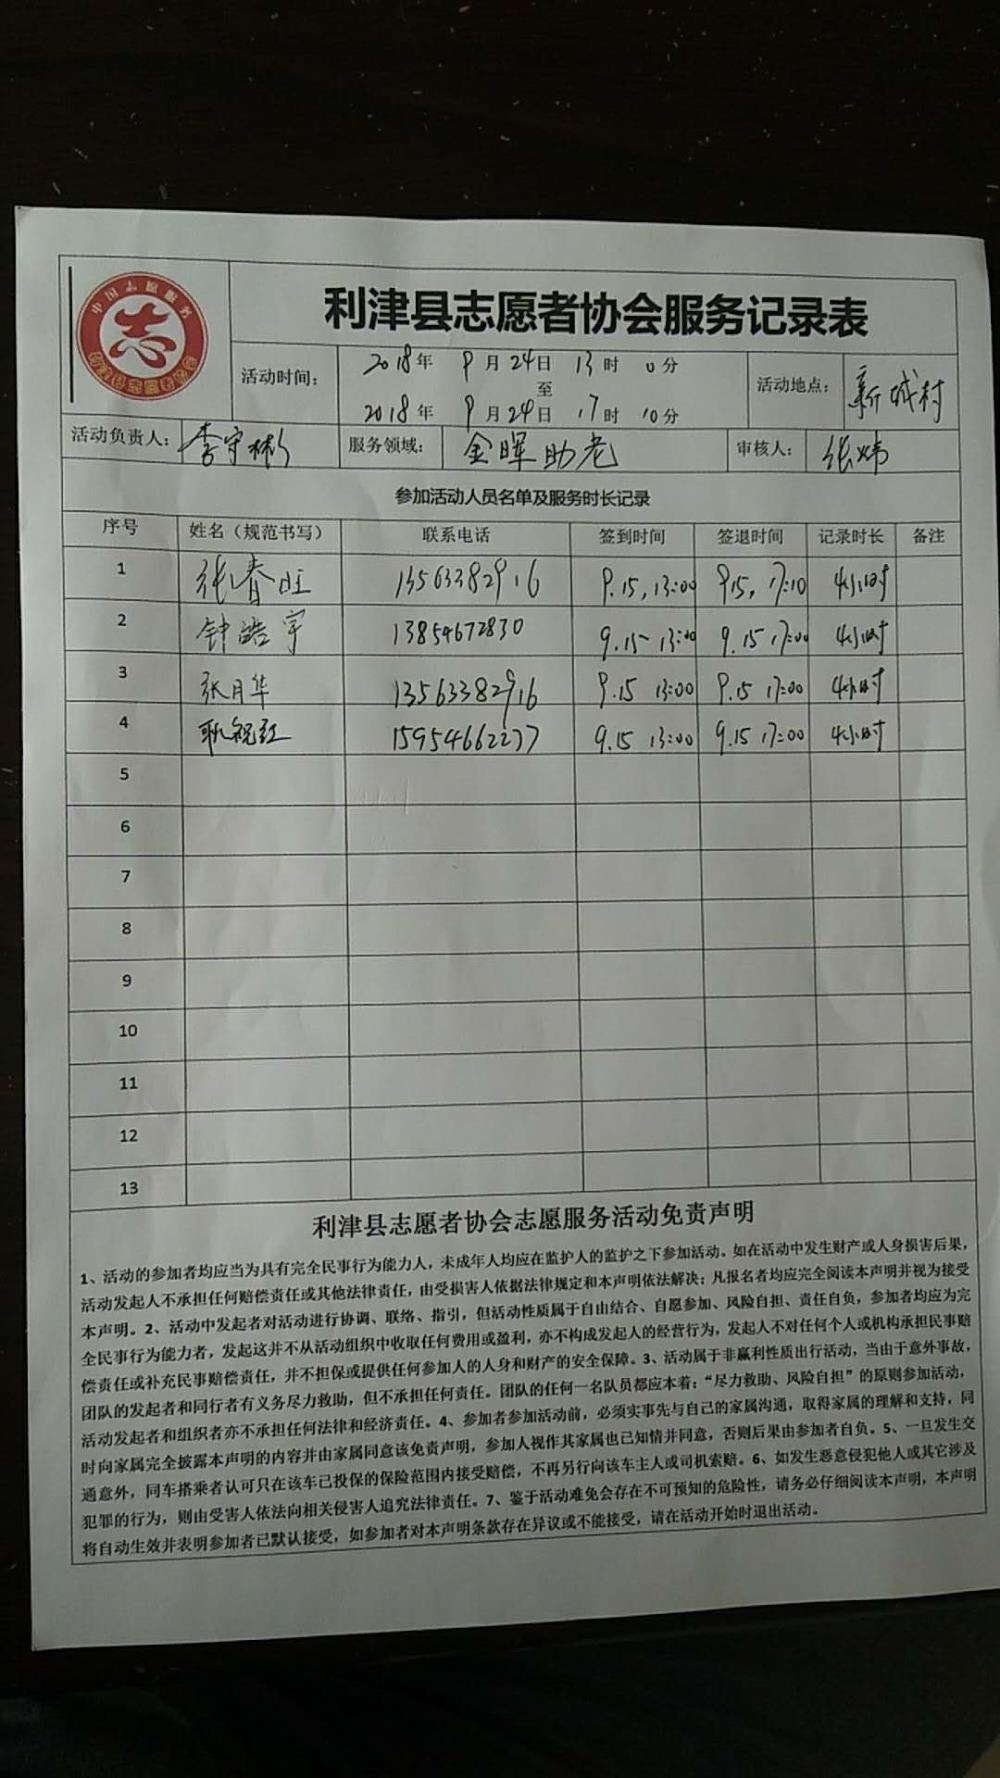 中国志愿服务
志
利津县志愿者协会服务记录表
活动时间： 2018年 9月24日 13时 0分
至
2018年 9月24日 17时 10分
活动地点： 新城村
活动负责人： 李守彬 服务领域： 金晖助老 审核人： 张炜
参加活动人员名单及服务时长记录
序号 姓名（规范书写） 联系电话 签到时间 签退时间 记录时长 备注
1 张春旺 13563382916 9.15, 13:00 9.15, 17:10 4小时
2 钟皓宇 13854672830 9.15 13:00 9.15 17:00 4小时
3 张月华 13563382916 9.15 13:00 9.15 17:00 4小时
4 耿祝红 15954662277 9.15 13:00 9.15 17:00 4小时
5
6
7
8
9
10
11
12
13
利津县志愿者协会志愿服务活动免责声明
1、活动的参加者均应当为具有完全民事行为能力人，未成年人均应在监护人的监护之下参加活动。如在活动中发生财产或人身损害后果，
活动发起人不承担任何赔偿责任或其他法律责任，由受损害人依据法律规定和本声明依法解决；凡报名者均应完全阅读本声明并视为接受
本声明。2、活动中发起者对活动进行协调、联络、指引，但活动性质属于自由结合、自愿参加、风险自担、责任自负，参加者均应为完
全民事行为能力者，发起这并不从活动组织中收取任何费用或盈利，亦不构成发起人的经营行为，发起人不对任何个人或机构承担民事赔
偿责任或补充民事赔偿责任，并不担保或提供任何参加人的人身和财产的安全保障。3、活动属于非赢利性质出行活动，当由于意外事故，
团队的发起者和同行者有义务尽力救助，但不承担任何责任。团队的任何一名队员都应本着：“尽力救助、风险自担”的原则参加活动，
活动发起者和组织者亦不承担任何法律和经济责任。4、参加者参加活动前，必须实事先与自己的家属沟通，取得家属的理解和支持，同
时向家属完全披露本声明的内容并由家属同意该免责声明，参加人视作其家属也已知情并同意，否则后果由参加者自负。5、一旦发生交
通意外，同车搭乘者认可只在该车已投保的保险范围内接受赔偿，不再另行向该车主人或司机索赔。6、如发生恶意侵犯他人或其它涉及
犯罪的行为，则由受害人依法向相关侵害人追究法律责任。7、鉴于活动难免会存在不可预知的危险性，请务必仔细阅读本声明，本声明
将自动生效并表明参加者已默认接受，如参加者对本声明条款存在异议或不能接受，请在活动开始时退出活动。